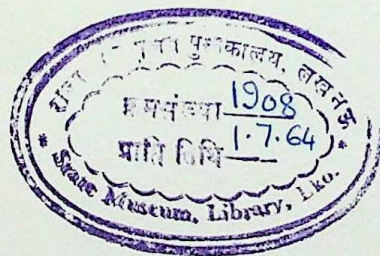 राज्य संग्रहालय पुस्तकालय, लखनऊ
क्रमसंख्या 1908
प्राप्ति तिथि 1.7.64
* State Museum, Library, Lko. *